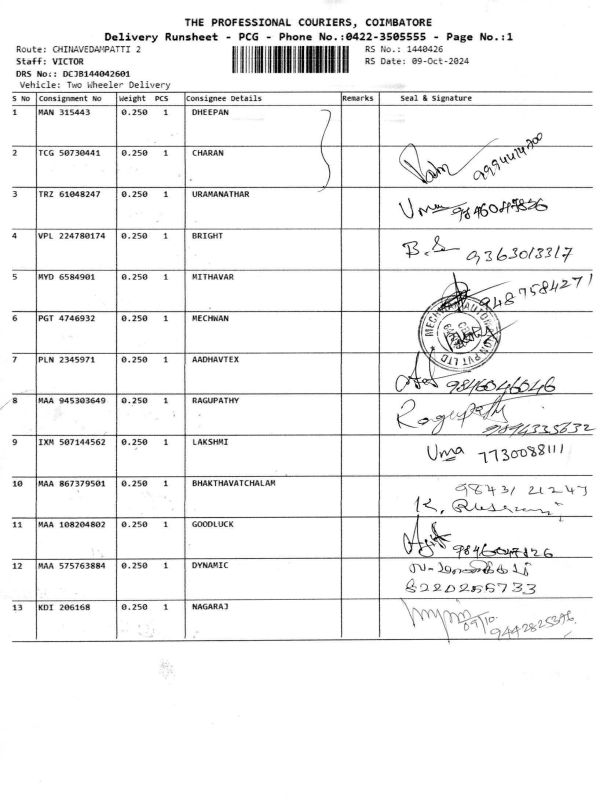 THE PROFESSIONAL COURIERS, COIMBATORE
Delivery Runsheet - PCG - Phone No.:0422-3505555 - Page No.:1
Route: CHINAVEDAMPATTI 2 RS No.: 1440426
Staff: VICTOR RS Date: 09-Oct-2024
DRS No.: DCJB144042601
Vehicle: Two Wheeler Delivery
S No Consignment No Weight PCS Consignee Details Remarks Seal & Signature
1 MAN 315443 0.250 1 DHEEPAN
2 TCG 50730441 0.250 1 CHARAN 9994414200
3 TRZ 61048247 0.250 1 URAMANATHAR Uma
4 VPL 224780174 0.250 1 BRIGHT 9363013317
5 MYD 6584901 0.250 1 MITHAVAR 9487584271
6 PGT 4746932 0.250 1 MECHWAN
7 PLN 2345971 0.250 1 AADHAVTEX 9846046046
8 MAA 945303649 0.250 1 RAGUPATHY Ragupathy 9894335632
9 IXM 507144562 0.250 1 LAKSHMI Uma 7730088111
10 MAA 867379501 0.250 1 BHAKTHAVATCHALAM 98431 21247
11 MAA 108204802 0.250 1 GOODLUCK
12 MAA 575763884 0.250 1 DYNAMIC 8220256733
13 KDI 206168 0.250 1 NAGARAJ 09/10